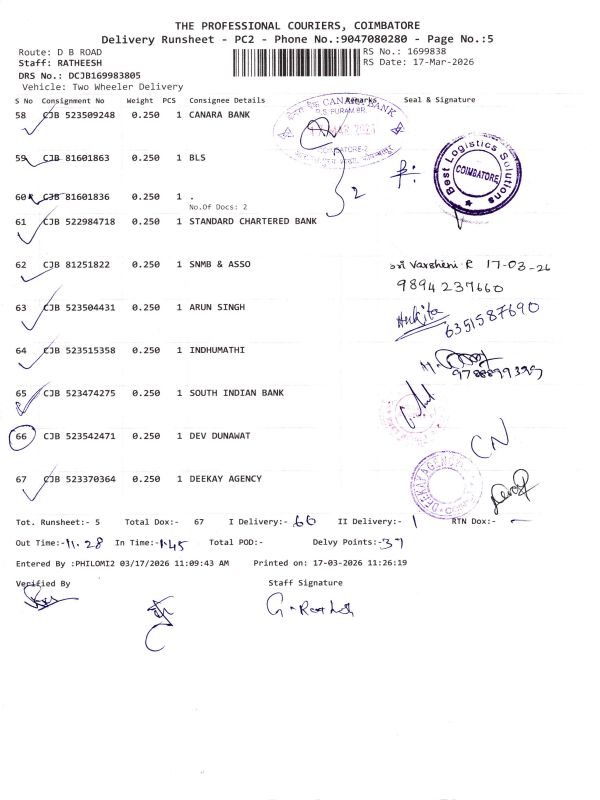 THE PROFESSIONAL COURIERS, COIMBATORE
Delivery Runsheet - PC2 - Phone No.:9047080280 - Page No.:5
Route: D B ROAD RS No.: 1699838
Staff: RATHEESH RS Date: 17-Mar-2026
DRS No.: DCJB169983805
Vehicle: Two Wheeler Delivery
S No Consignment No Weight PCS Consignee Details Remarks Seal & Signature
58 CJB 523509248 0.250 1 CANARA BANK
CANARA BANK
R.S. PURAM BR.
MAR 2026
COIMBATORE-2
59 CJB 81601863 0.250 1 BLS
2
Best Logistics Solutions
COIMBATORE
60 CJB 81601836 0.250 1 .
No.Of Docs: 2
61 CJB 522984718 0.250 1 STANDARD CHARTERED BANK
62 CJB 81251822 0.250 1 SNMB & ASSO
Varsheni.R 17-03-26
9894237660
63 CJB 523504431 0.250 1 ARUN SINGH
6351587690
64 CJB 523515358 0.250 1 INDHUMATHI
65 CJB 523474275 0.250 1 SOUTH INDIAN BANK
66 CJB 523542471 0.250 1 DEV DUNAWAT
CN
67 CJB 523370364 0.250 1 DEEKAY AGENCY
DEEKAY AGENCY
Tot. Runsheet:- 5 Total Dox:- 67 I Delivery:- 66 II Delivery:- 1 RTN Dox:- -
Out Time:- 11.28 In Time:- 1.45 Total POD:- Delvy Points:- 37
Entered By :PHILOMI2 03/17/2026 11:09:43 AM Printed on: 17-03-2026 11:26:19
Verified By Staff Signature